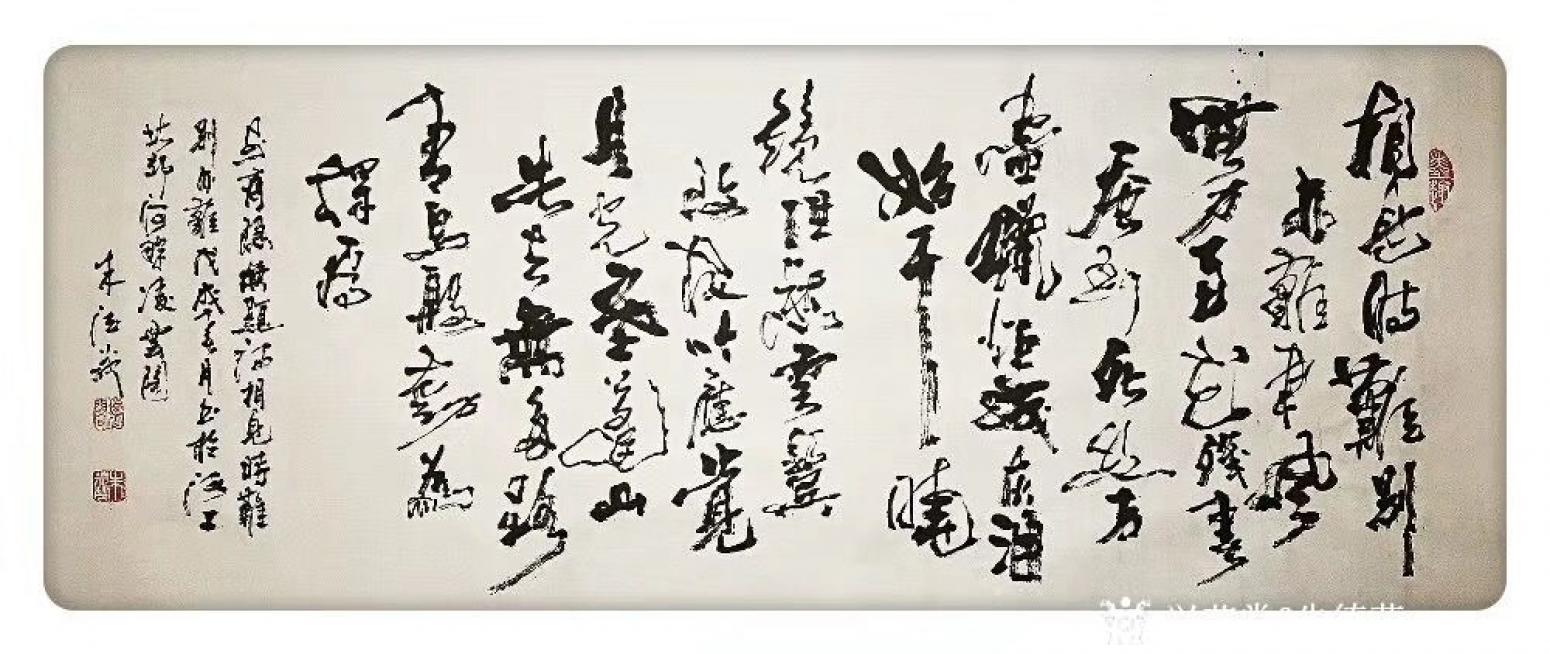 相見時難別
亦難東風
無力百花殘春
蠶到死絲方
盡蠟炬成灰淚
始干曉
鏡但愁雲鬢
改夜吟應覺
月光寒蓬山
此去無多路
青鳥殷勤為
探看
商隱無題詩相見時難
別亦難戊戌春月書於
凌雲閣
朱德茂